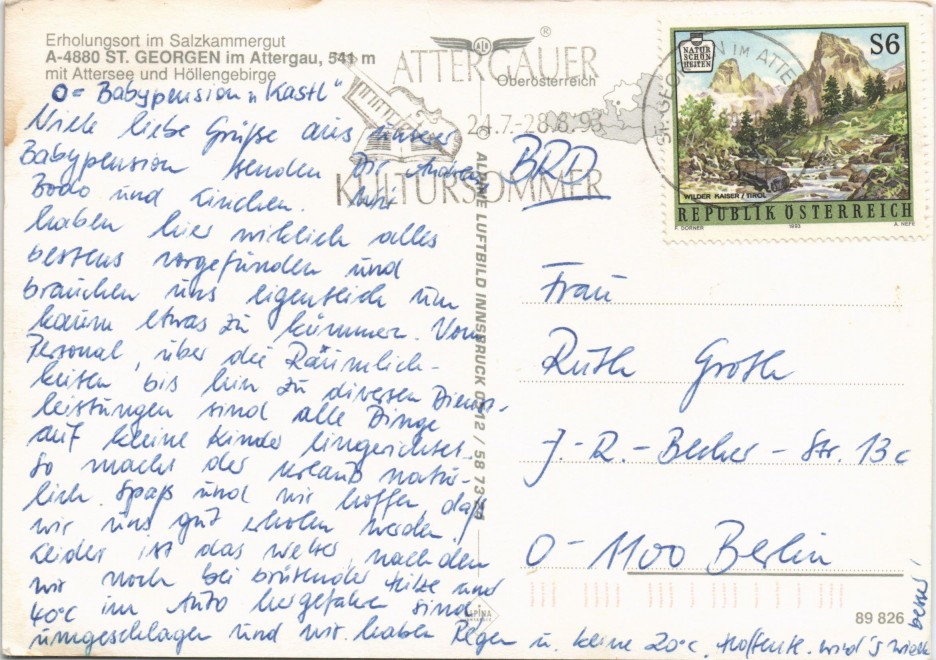 Erholungsort im Salzkammergut
A-4880 ST. GEORGEN im Attergau, 541 m
mit Attersee und Höllengebirge
O = Babypension "Kastl"
Viele liebe Grüße aus unserer
Babypension senden Dir Andrea,
Bodo und Linchen. Wir
haben hier wirklich alles
bestens vorgefunden und
brauchen uns eigentlich um
kaum etwas zu kümmern. Vom
Personal, über die Räumlich-
keiten bis hin zu diversen Dienst-
leistungen sind alle Dinge
auf kleine Kinder eingerichtet.
So macht der Urlaub natür-
lich Spaß und wir hoffen, daß
wir uns gut erholen werden.
Leider ist das Wetter, nachdem
wir noch bei brütender Hitze und
40°C im Auto hergefahren sind
umgeschlagen und wir haben Regen u. keine 20°C. Hoffentl. wird's wieder
besser!
ALPINE LUFTBILD INNSBRUCK
ALPINA
ALR
®
ATTERGAUER
Oberösterreich
24.7.-28.8.93
KULTURSOMMER
ST. GEORGEN IM ATTE
NATUR
SCHÖN
HEITEN
S6
WILDER KAISER / TIROL
REPUBLIK ÖSTERREICH
F. DORNER 1993 A. NEFE
BRD
Frau
Ruth Groth
J.-R.-Becher-Str. 13c
O-1100 Berlin
89 826